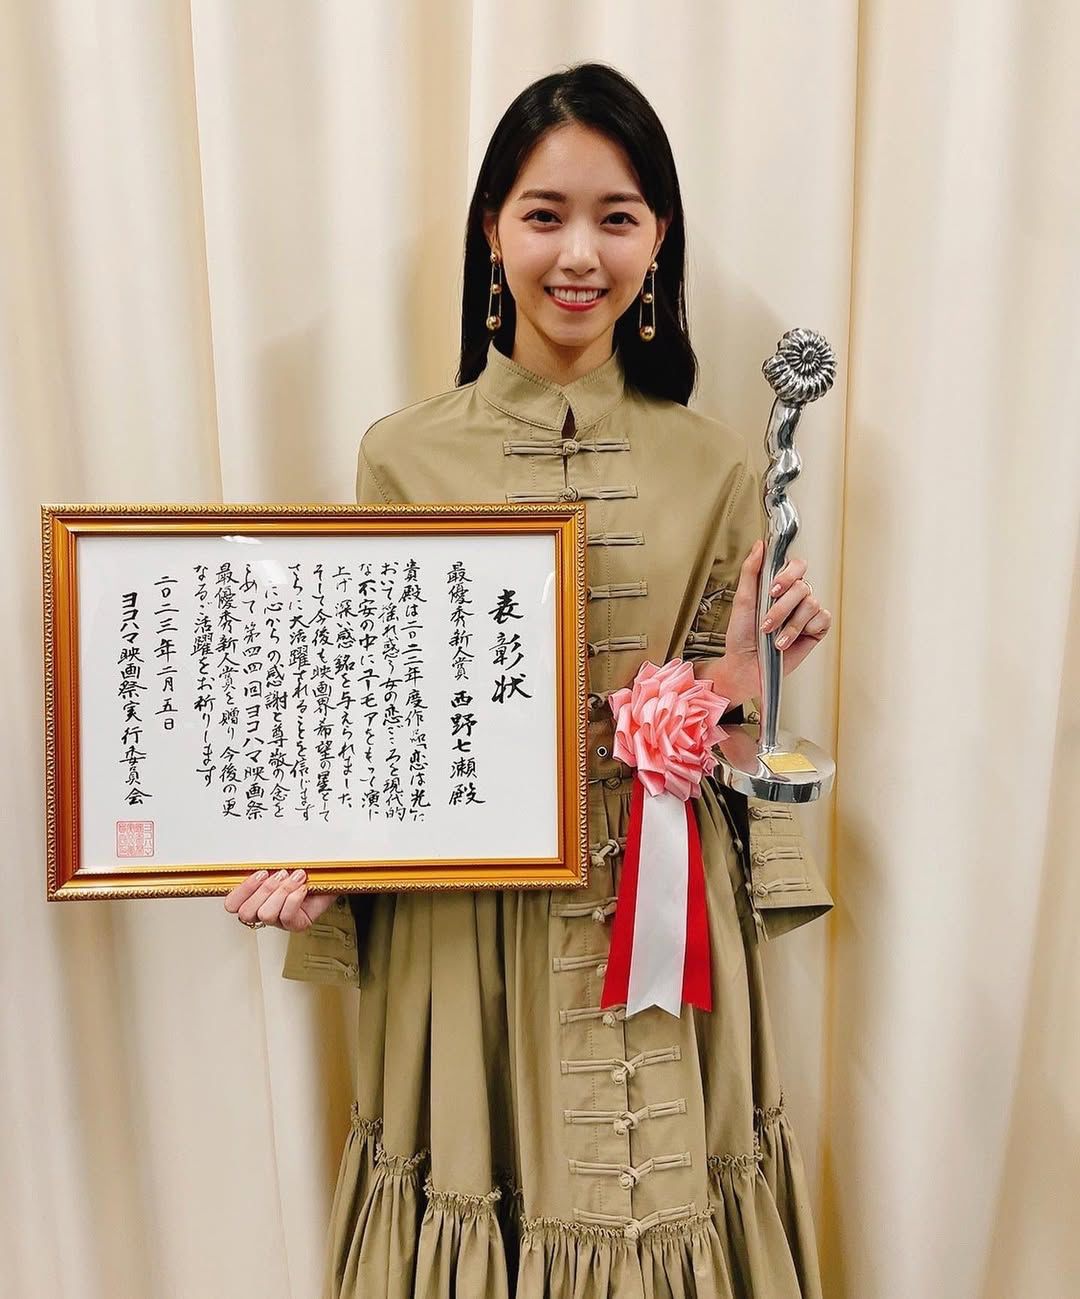 表彰状
最優秀新人賞 西野七瀬殿
貴殿は二〇二二年度作品「恋は光」に
おいて揺れ惑う女の恋ごころを現代的
な不安の中にユーモアをもって演じ
上げ 深い感銘を与えられました
そして今後も映画界希望の星として
さらに大活躍されることを信じます
ここに心からの感謝と尊敬の念を
こめて 第四四回ヨコハマ映画祭
最優秀新人賞を贈り 今後の更
なるご活躍をお祈りします
二〇二三年二月五日
ヨコハマ映画祭実行委員会